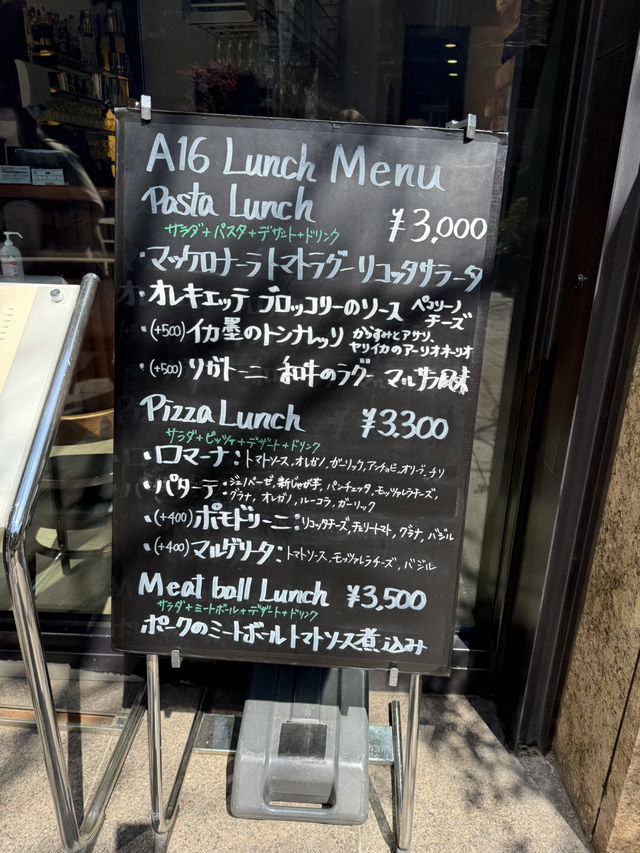 A16 Lunch Menu
Pasta Lunch
サラダ+パスタ+デザート+ドリンク ¥3,000
・マッケロナーラ トマトラグー リコッタサラータ
・オレキエッテ ブロッコリーのソース ペコリーノチーズ
・(+500) イカ墨のトンナレッリ からすみとアサリ、
ヤリイカのアーリオオーリオ
・(+500) リガトーニ 和牛のラグー マルサラ風味
Pizza Lunch ¥3.300
サラダ+ピッツァ+デザート+ドリンク
・ロマーナ:トマトソース,オレガノ,ガーリック,アンチョビ,オリーブ,チリ
・パターテ・ジェノベーゼ,新じゃが芋,パンチェッタ,モッツァレラチーズ,
・グラナ,オレガノ,ルーコラ,ガーリック
・(+400) ポモドリーニ:リコッタチーズ,チェリートマト,グラナ,バジル
・(+400) マルゲリータ:トマトソース,モッツァレラチーズ,バジル
Meat ball Lunch ¥3,500
サラダ+ミートボール+デザート+ドリンク
ポークのミートボールトマトソース煮込み